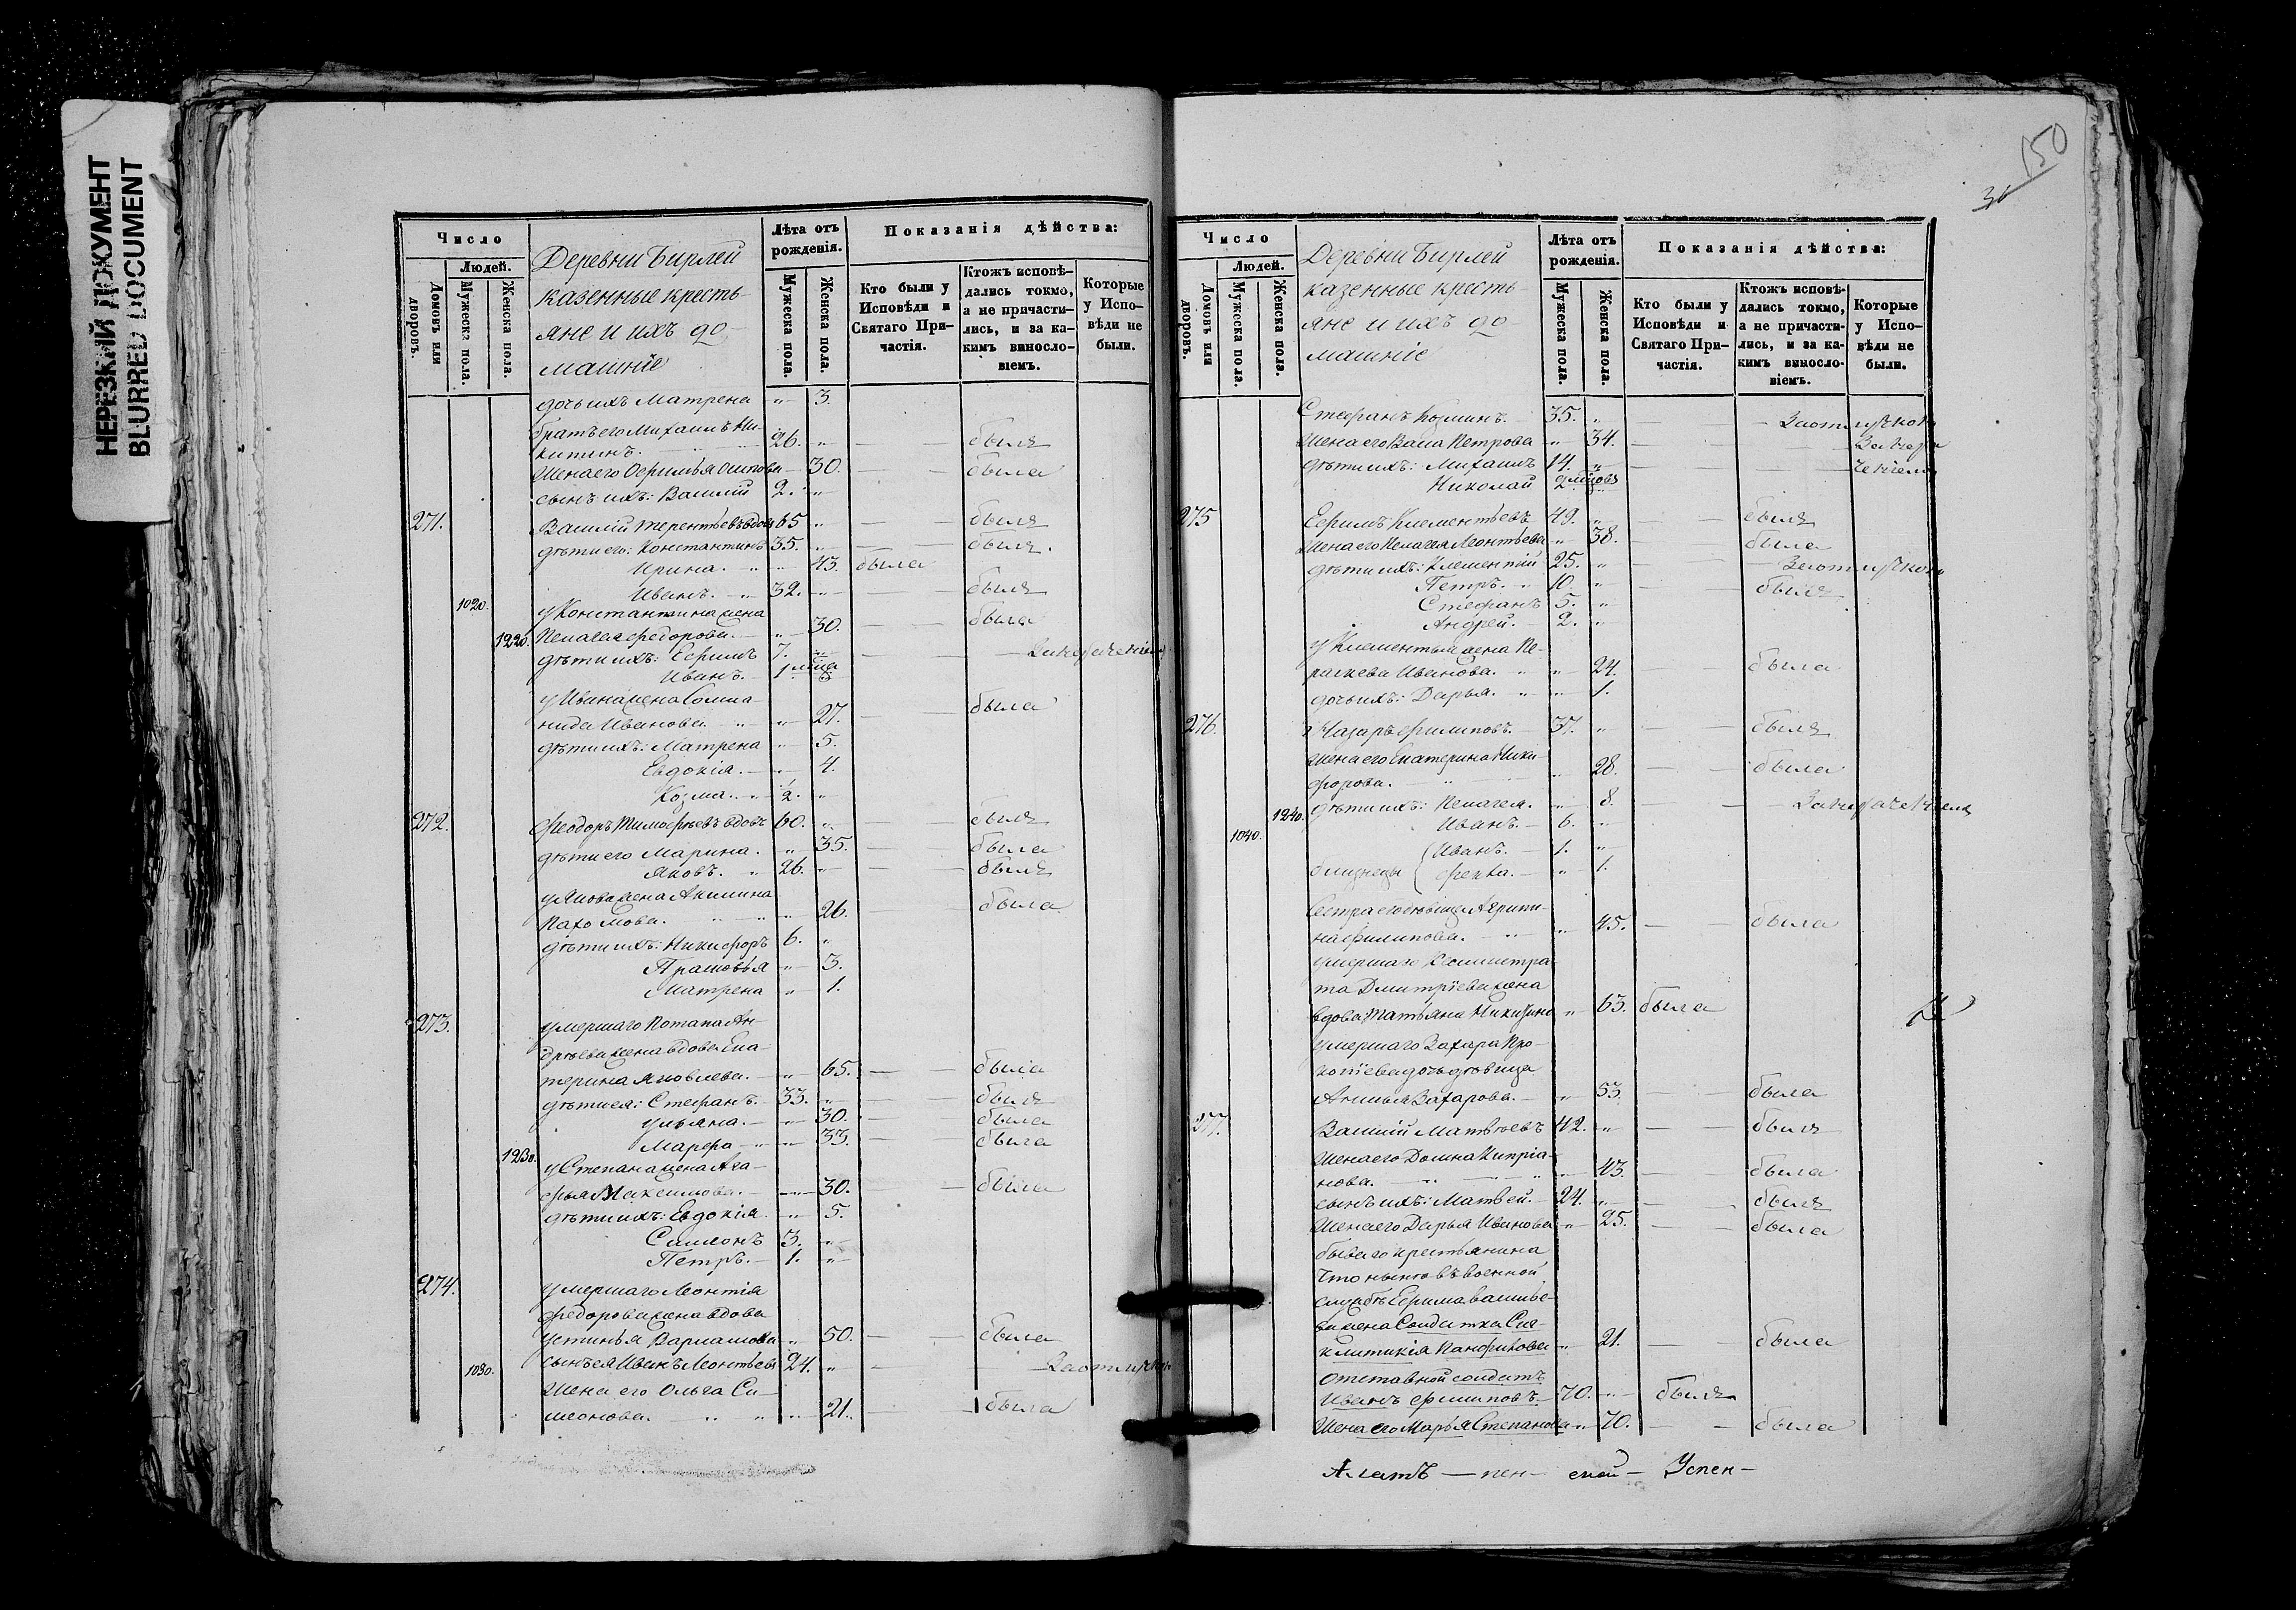 НЕРЕЗКИЙ ДОКУМЕНТ
BLURRED DOCUMENT
Число
Людей.
Домовъ или дворовъ.
Мужеска пола.
Женска пола.
Деревни Бирлей
казенные кресть-
яне и ихъ до-
машніе
Лѣта отъ рожденія.
Мужеска пола.
Женска пола.
Показанія дѣйства:
Кто были у Исповѣди и Святаго При-частія.
Ктожъ исповѣ-дались токмо, а не причасти-лись, и за ка-кимъ винословіемъ.
Которые у Испо-вѣди не были.
дочь ихъ Матрена " 3.
братъ его Михаилъ Ни-
китинъ. 26. " былъ
жена его Ефимья Осипова 30. была
сынъ ихъ: Василій 2. "
271. Василій Терентьевъ вдовъ 65 " былъ
дѣти его: Константинъ 35. " былъ.
Ирина. " 43. была
Иванъ. 32. " былъ
1020. у Константина жена
1220. Пелагея Федорова. " 30. была
дѣти ихъ: Ефимъ 7. "
Иванъ. 1
у Ивана жена Соломо-
нида Иванова. " 27. была
дѣти ихъ: Матрена " 5.
Евдокія. " 4.
Козма. 2. "
272. Феодоръ Тимофеевъ вдовъ 60. " былъ
дѣти его Марина. " 35. была
Яковъ. 26. " былъ
у Якова жена Акилина
Пахомова. " 26. была
дѣти ихъ: Никифоръ 6. "
Прасковья " 3.
Матрена " 1.
273. умершаго Потапа Ан-
дрѣева жена вдова Ека-
терина Яковлева. " 65. была
дѣти ея: Стефанъ. 33. " былъ
Ульяна. " 30. была
Марфа " 33. была
1230. у Степана жена Ага-
фья Максимова. 30. была
дѣти ихъ: Евдокія " 5.
Симеонъ 3. "
Петръ. 1. "
274. умершаго Леонтія
Федорова жена вдова
Устинья Варламова " 50. была
1030. сынъ ея Иванъ Леонтьевъ 24. " За отлучкою
жена его Ольга Си-
меонова. " 21. была
150
30
Число
Людей.
Домовъ или дворовъ.
Мужеска пола.
Женска пола.
Деревни Бирлей
казенные кресть-
яне и ихъ до-
машніе
Лѣта отъ рожденія.
Мужеска пола.
Женска пола.
Показанія дѣйства:
Кто были у Исповѣди и Святаго При-частія.
Ктожъ исповѣ-дались токмо, а не причасти-лись, и за ка-кимъ винословіемъ.
Которые у Испо-вѣди не были.
Стефанъ Козминъ. 35. " За отлучкою
жена его Васа Петрова " 34.
дѣти ихъ: Михаилъ 14. "
Николай 2
275 Ефимъ Клементьевъ 49. " былъ
жена его Пелагея Леонтьева " 38. была
дѣти ихъ: Клементій 25. " За отлучкою
Петръ. 10. " былъ
Стефанъ 5. "
Андрей. 2. "
у Клементья жена Па-
раскева Иванова. " 24. была
дочь ихъ: Дарья. " 1.
276. Назаръ Филиповъ. 37. " былъ
жена его Екатерина Ники-
форова. " 28. была
1240. дѣти ихъ: Пелагея. " 8.
1040. Иванъ. 6. "
Иванъ. 1. "
близнецы Фекла. " 1.
Сестра его дѣвица Агрипи-
на Филипова. " 45. была
умершаго Калистра-
та Дмитріева жена
вдова Татьяна Никитина " 63. была
умершаго Захара Про-
копіева дочь дѣвица
Анисья Захарова. " 53. была
277. Василій Матвѣевъ 42. " былъ
жена его Домна Кипріа-
нова. " 43. была
сынъ ихъ: Матвей. 24. " былъ
жена его Дарья Иванова " 25. была
бывшаго крестьянина
что нынѣ въ военной
службѣ Ефима Василье-
ва жена Солдатка
Панфилова " 21. была
отставной солдатъ
Иванъ Филиповъ. 70. " былъ
жена его Марья Степанова " 70. была
Алатъ — — ской — Успен —